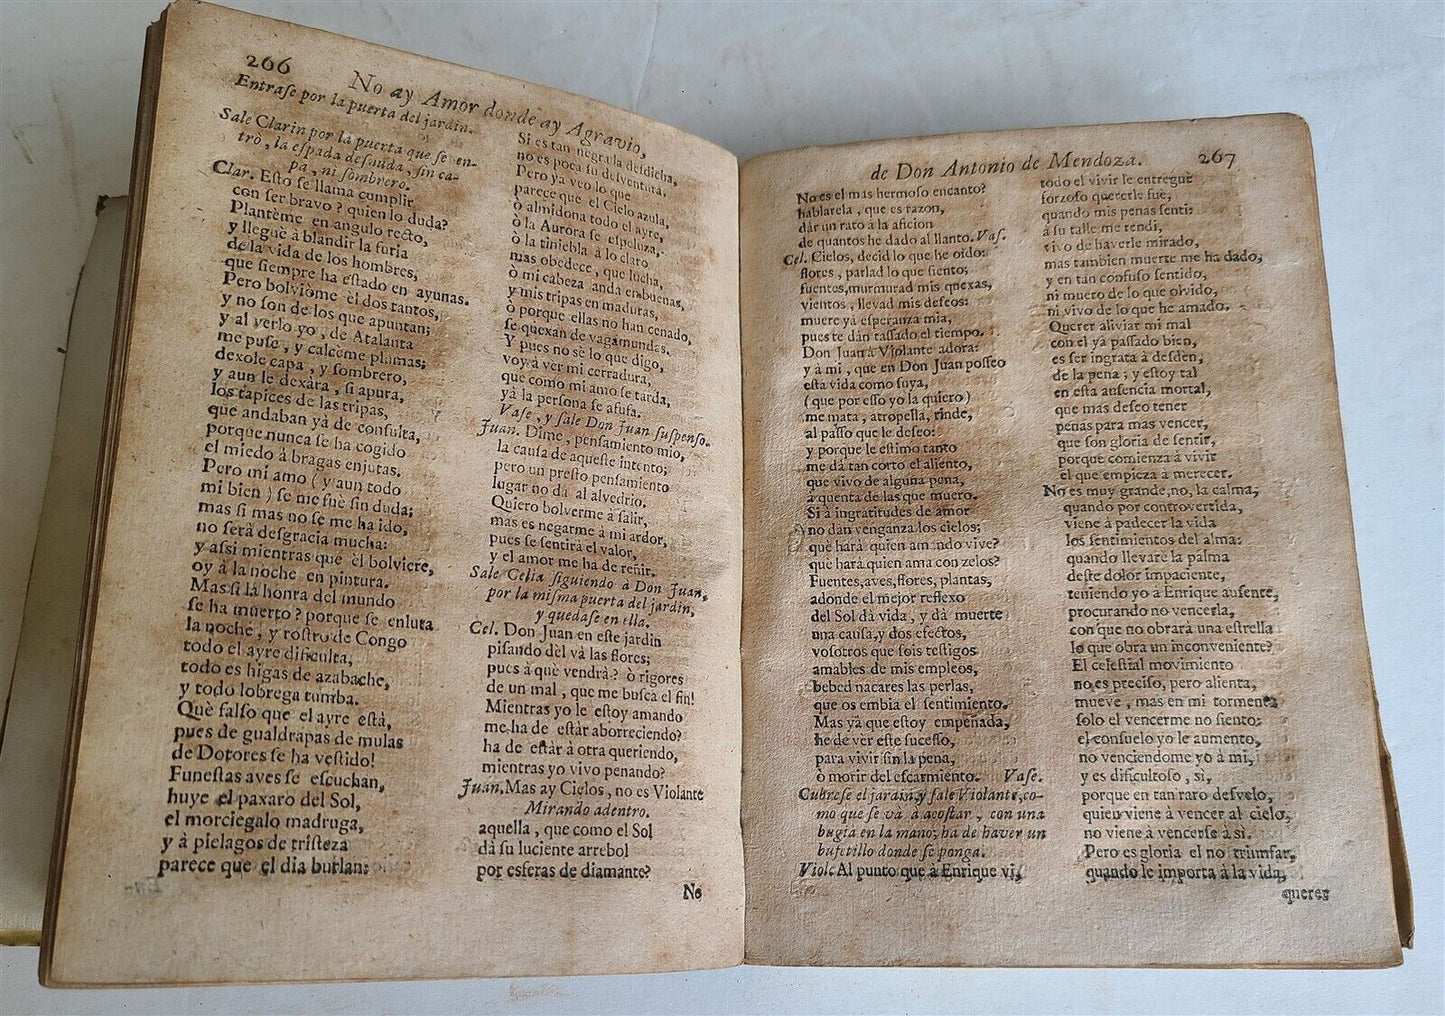 266
No ay Amor donde ay Agravio,
Entrase por la puerta del jardin.
Sale Clarin por la puerta que se en-
trò, la espada desnuda, sin ca-
pa, ni sombrero.
Clar. Esto se llama cumplir
con ser bravo? quien lo duda?
Plantème en angulo recto,
y lleguè à blandir la furia
de la vida de los hombres,
que siempre ha estado en ayunas.
Pero bolviòme èl dos tantos,
y no son de los que apuntan;
y al verlo yo, de Atalanta
me puse, y calcème plumas;
dexole capa, y sombrero,
y aun le dexàra, si apura,
los tapices de las tripas,
que andaban yà de consulta,
porque nunca se ha cogido
el miedo à bragas enjutas.
Pero mi amo (y aun todo
mi bien) se me fuè sin duda;
mas si mas no se me ha ido,
no serà desgracia mucha:
y assi mientras que èl bolviere,
oy à la noche en pintura.
Mas si la honra del mundo
se ha muerto? porque se enluta
la noche, y rostro de Congo
todo el ayre dificulta,
todo es higas de azabache,
y todo lobrega tumba.
Què falso que el ayre està,
pues de gualdrapas de mulas
de Dotores se ha vestido!
Funestas aves se escuchan,
huye el paxaro del Sol,
el morciegalo madruga,
y à pielagos de tristeza
parece que el dia burlan:
Si es tan negra la desdicha,
no es poca su desventura.
Pero ya veo lo que
parece que el Cielo azula,
ò almidona todo el ayre,
ò la Aurora se espeluza,
ò la tiniebla à lo claro
mas obedece, que lucha,
ò mi cabeza anda en buenas,
y mis tripas en maduras,
ò porque ellas no han cenado,
se quexan de vagamundes.
Y pues no sè lo que digo,
voy à ver mi cerradura,
que como mi amo se tarda,
yà la persona se afufa.
Vase, y sale Don Juan suspenso.
Juan. Dime, pensamiento mio,
la causa de aqueste intento;
pero un presto pensamiento
lugar no dà al alvedrio.
Quiero bolverme à salir,
mas es negarme à mi ardor,
pues se sentirà el valor,
y el amor me ha de reñir.
Sale Celia siguiendo à Don Juan,
por la misma puerta del jardin,
y quedase en ella.
Cel. Don Juan en este jardin
pisando dèl và las flores;
pues à què vendrà? ò rigores
de un mal, que me busca el fin!
Mientras yo le estoy amando
me ha de estàr aborreciendo?
ha de estàr à otra queriendo,
mientras yo vivo penando?
Juan. Mas ay Cielos, no es Violante
Mirando adentro.
aquella, que como el Sol
dà su luciente arrebol
por esferas de diamante?
No
de Don Antonio de Mendoza.
267
No es el mas hermoso encanto?
hablarela, que es razon,
dàr un rato à la aficion
de quantos he dado al llanto. Vas.
Cel. Cielos, decid lo que he oìdo:
flores, parlad lo que siento;
fuentes, murmurad mis quexas,
vientos, llevad mis deseos:
muere yà esperanza mia,
pues te dàn tassado el tiempo.
Don Juan à Violante adora:
y à mi, que en Don Juan posseo
esta vida como suya,
(que por esso yo la quiero)
me mata, atropella, rinde,
al passo que le deseo:
y porque le estimo tanto
me dà tan corto el aliento,
que vivo de alguna pena,
à quenta de las que muero.
Si à ingratitudes de amor
no dàn venganza los cielos;
què harà quien amando vive?
què harà quien ama con zelos?
Fuentes, aves, flores, plantas,
adonde el mejor reflexo
del Sol dà vida, y dà muerte
una causa, y dos efectos,
vosotros que sois testigos
amables de mis empleos,
bebed nacares las perlas,
que os embia el sentimiento.
Mas yà que estoy empeñada,
he de ver este sucesso,
para vivir sin la pena,
ò morir del escarmiento. Vase.
Cubrese el jardin, y sale Violante, co-
mo que se và à acostar, con una
bugia en la mano; ha de haver un
bufetillo donde se ponga.
Viol. Al punto que à Enrique vi,
todo el vivir le entreguè
forzoso quererle fuè,
quando mis penas sentì:
à su talle me rendì,
vivo de haverle mirado,
mas tambien muerte me ha dado,
y en tan confuso sentido,
ni muero de lo que olvido,
ni vivo de lo que he amado.
Querer aliviar mi mal
con el yà passado bien,
es ser ingrata à desdèn,
de la pena; y estoy tal
en esta ausencia mortal,
que mas deseo tener
penas para mas vencer,
que son gloria de sentir,
porque comienza à vivir
el que empieza à merecer.
No es muy grande, no, la calma,
quando por controvertida,
viene à padecer la vida
los sentimientos del alma:
quando llevare la palma
deste dolor impaciente,
teniendo yo à Enrique ausente,
procurando no vencerla,
con que no obrarà una estrella
lo que obra un inconveniente?
El celestial movimiento
no es preciso, pero alienta,
mueve, mas en mi tormenta
solo el vencerme no siento:
el consuelo yo le aumento,
no venciendome yo à mi,
y es dificultoso, si,
porque en tan raro desvelo,
quien viene à vencer al cielo,
no viene à vencerse à sì.
Pero es gloria el no triumfar,
quando le importa à la vida,
queres